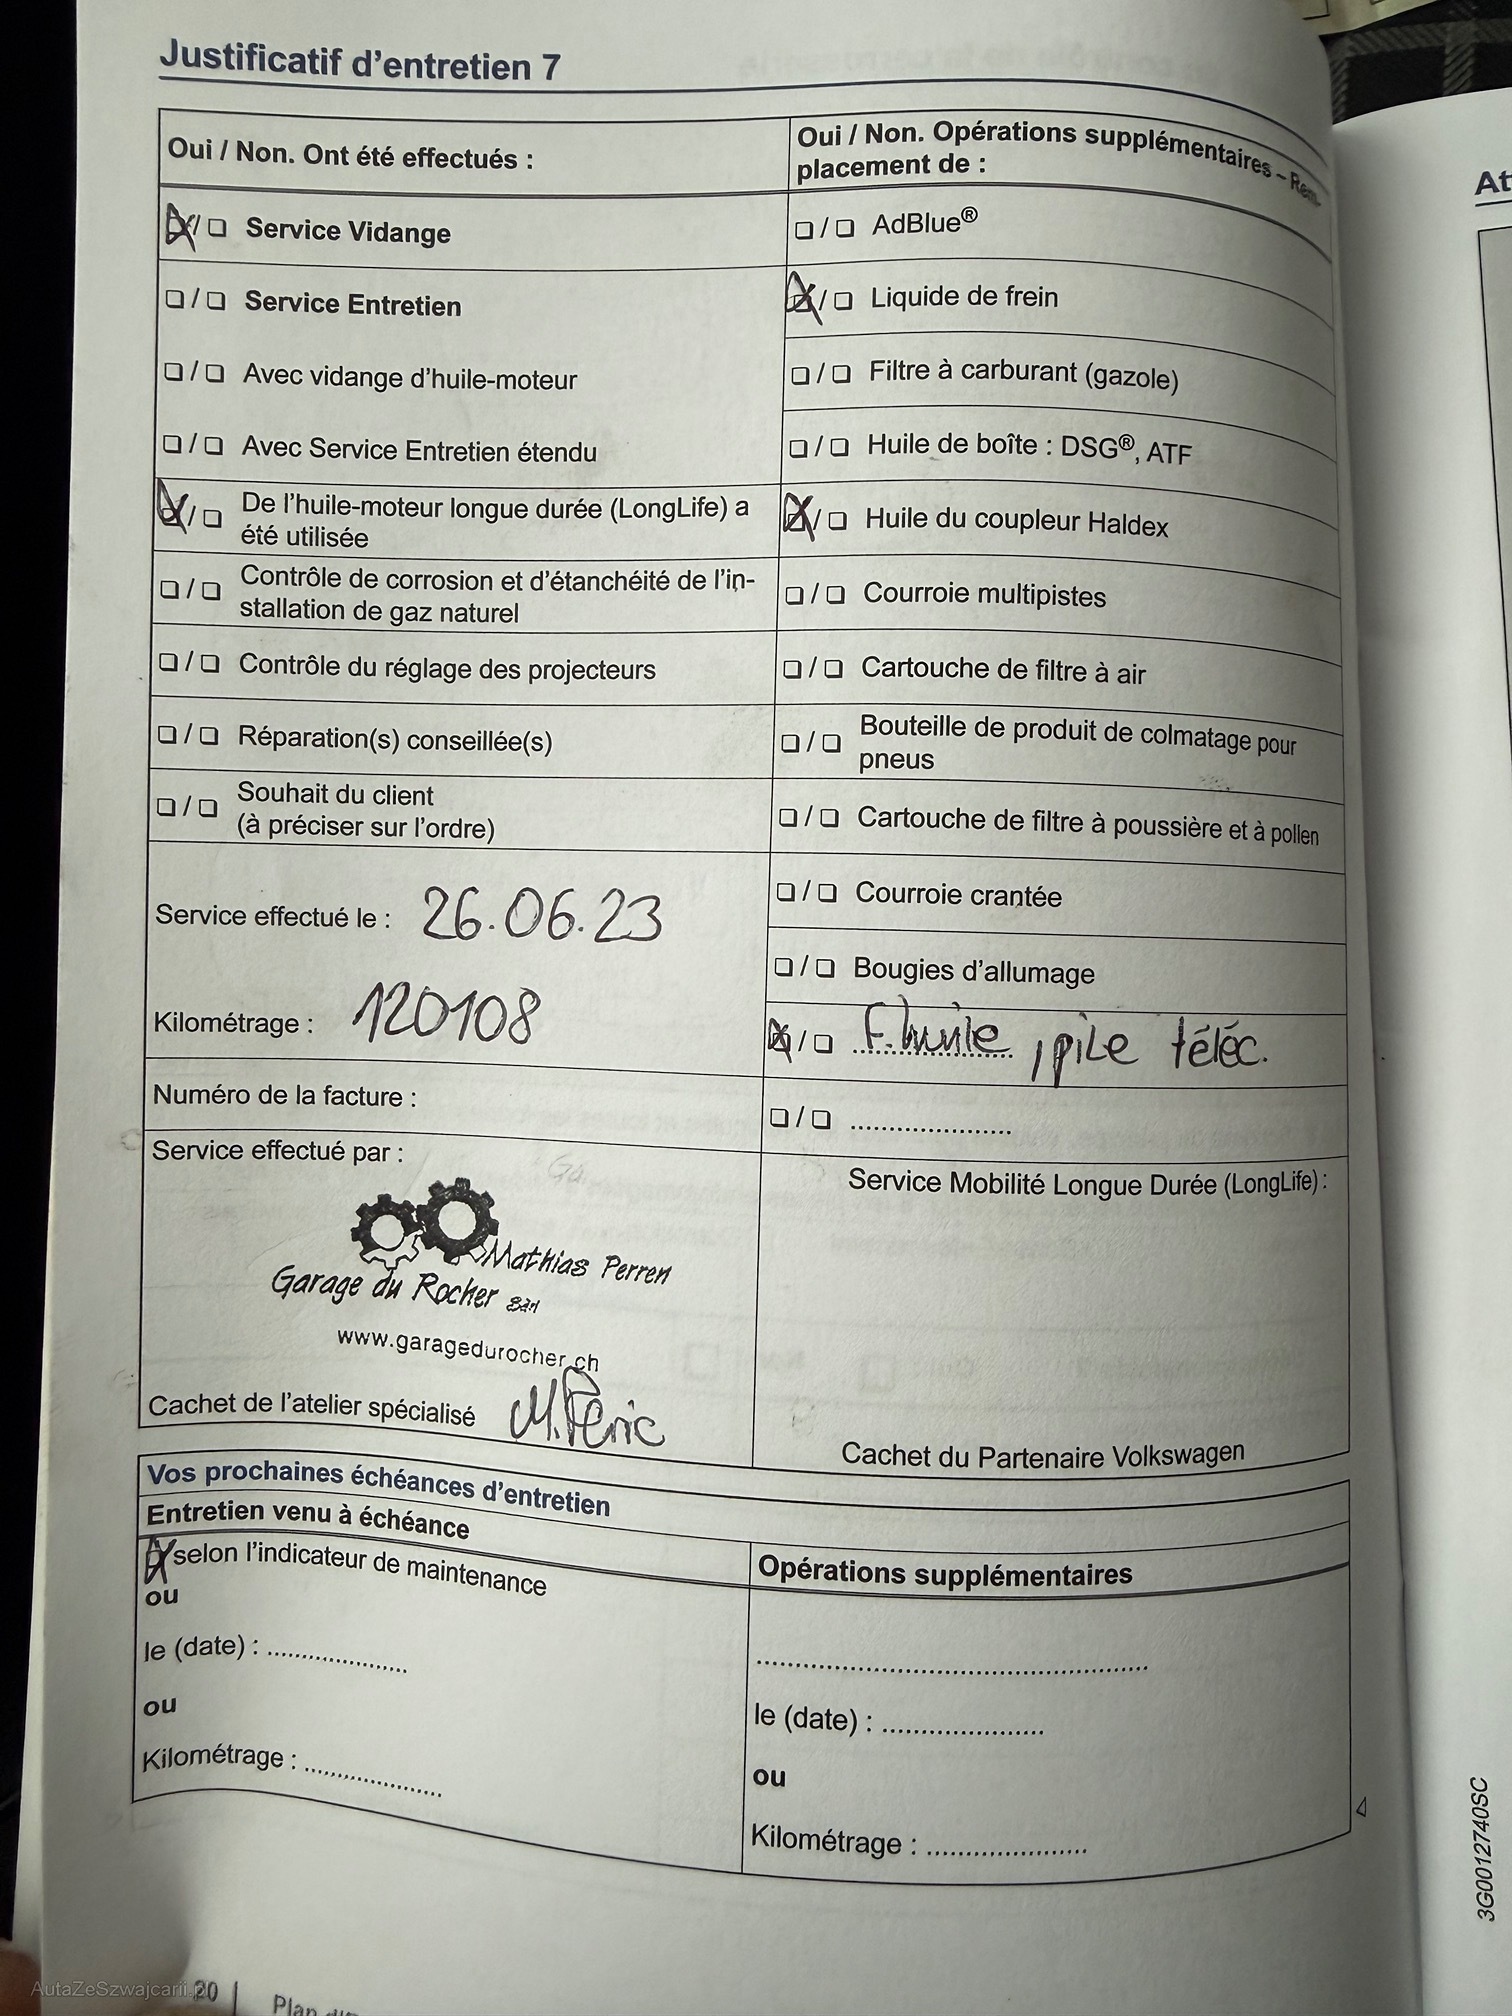 Justificatif d'entretien 7
Oui / Non. Ont été effectués :
☒/❏ Service Vidange
❏/❏ Service Entretien
❏/❏ Avec vidange d'huile-moteur
❏/❏ Avec Service Entretien étendu
☒/❏ De l'huile-moteur longue durée (LongLife) a
été utilisée
❏/❏ Contrôle de corrosion et d'étanchéité de l'in-
stallation de gaz naturel
❏/❏ Contrôle du réglage des projecteurs
❏/❏ Réparation(s) conseillée(s)
❏/❏ Souhait du client
(à préciser sur l'ordre)
Service effectué le : 26.06.23
Kilométrage : 120108
Numéro de la facture :
Service effectué par :
Mathias Perren
Garage du Rocher Sàrl
www.garagedurocher.ch
Cachet de l'atelier spécialisé M. Peric
Oui / Non. Opérations supplémentaires – Rem-
placement de :
❏/❏ AdBlue®
☒/❏ Liquide de frein
❏/❏ Filtre à carburant (gazole)
❏/❏ Huile de boîte : DSG®, ATF
☒/❏ Huile du coupleur Haldex
❏/❏ Courroie multipistes
❏/❏ Cartouche de filtre à air
❏/❏ Bouteille de produit de colmatage pour
pneus
❏/❏ Cartouche de filtre à poussière et à pollen
❏/❏ Courroie crantée
❏/❏ Bougies d'allumage
☒/❏ F. huile, pile téléc.
❏/❏ .....................
Service Mobilité Longue Durée (LongLife) :
Cachet du Partenaire Volkswagen
Vos prochaines échéances d'entretien
Entretien venu à échéance
☒ selon l'indicateur de maintenance
ou
le (date) : ....................
ou
Kilométrage : ....................
Opérations supplémentaires
..........................................................
le (date) : .......................
ou
Kilométrage : .......................
20
Plan
AutaZeSzwajcarii.pl
At
3G0012740SC